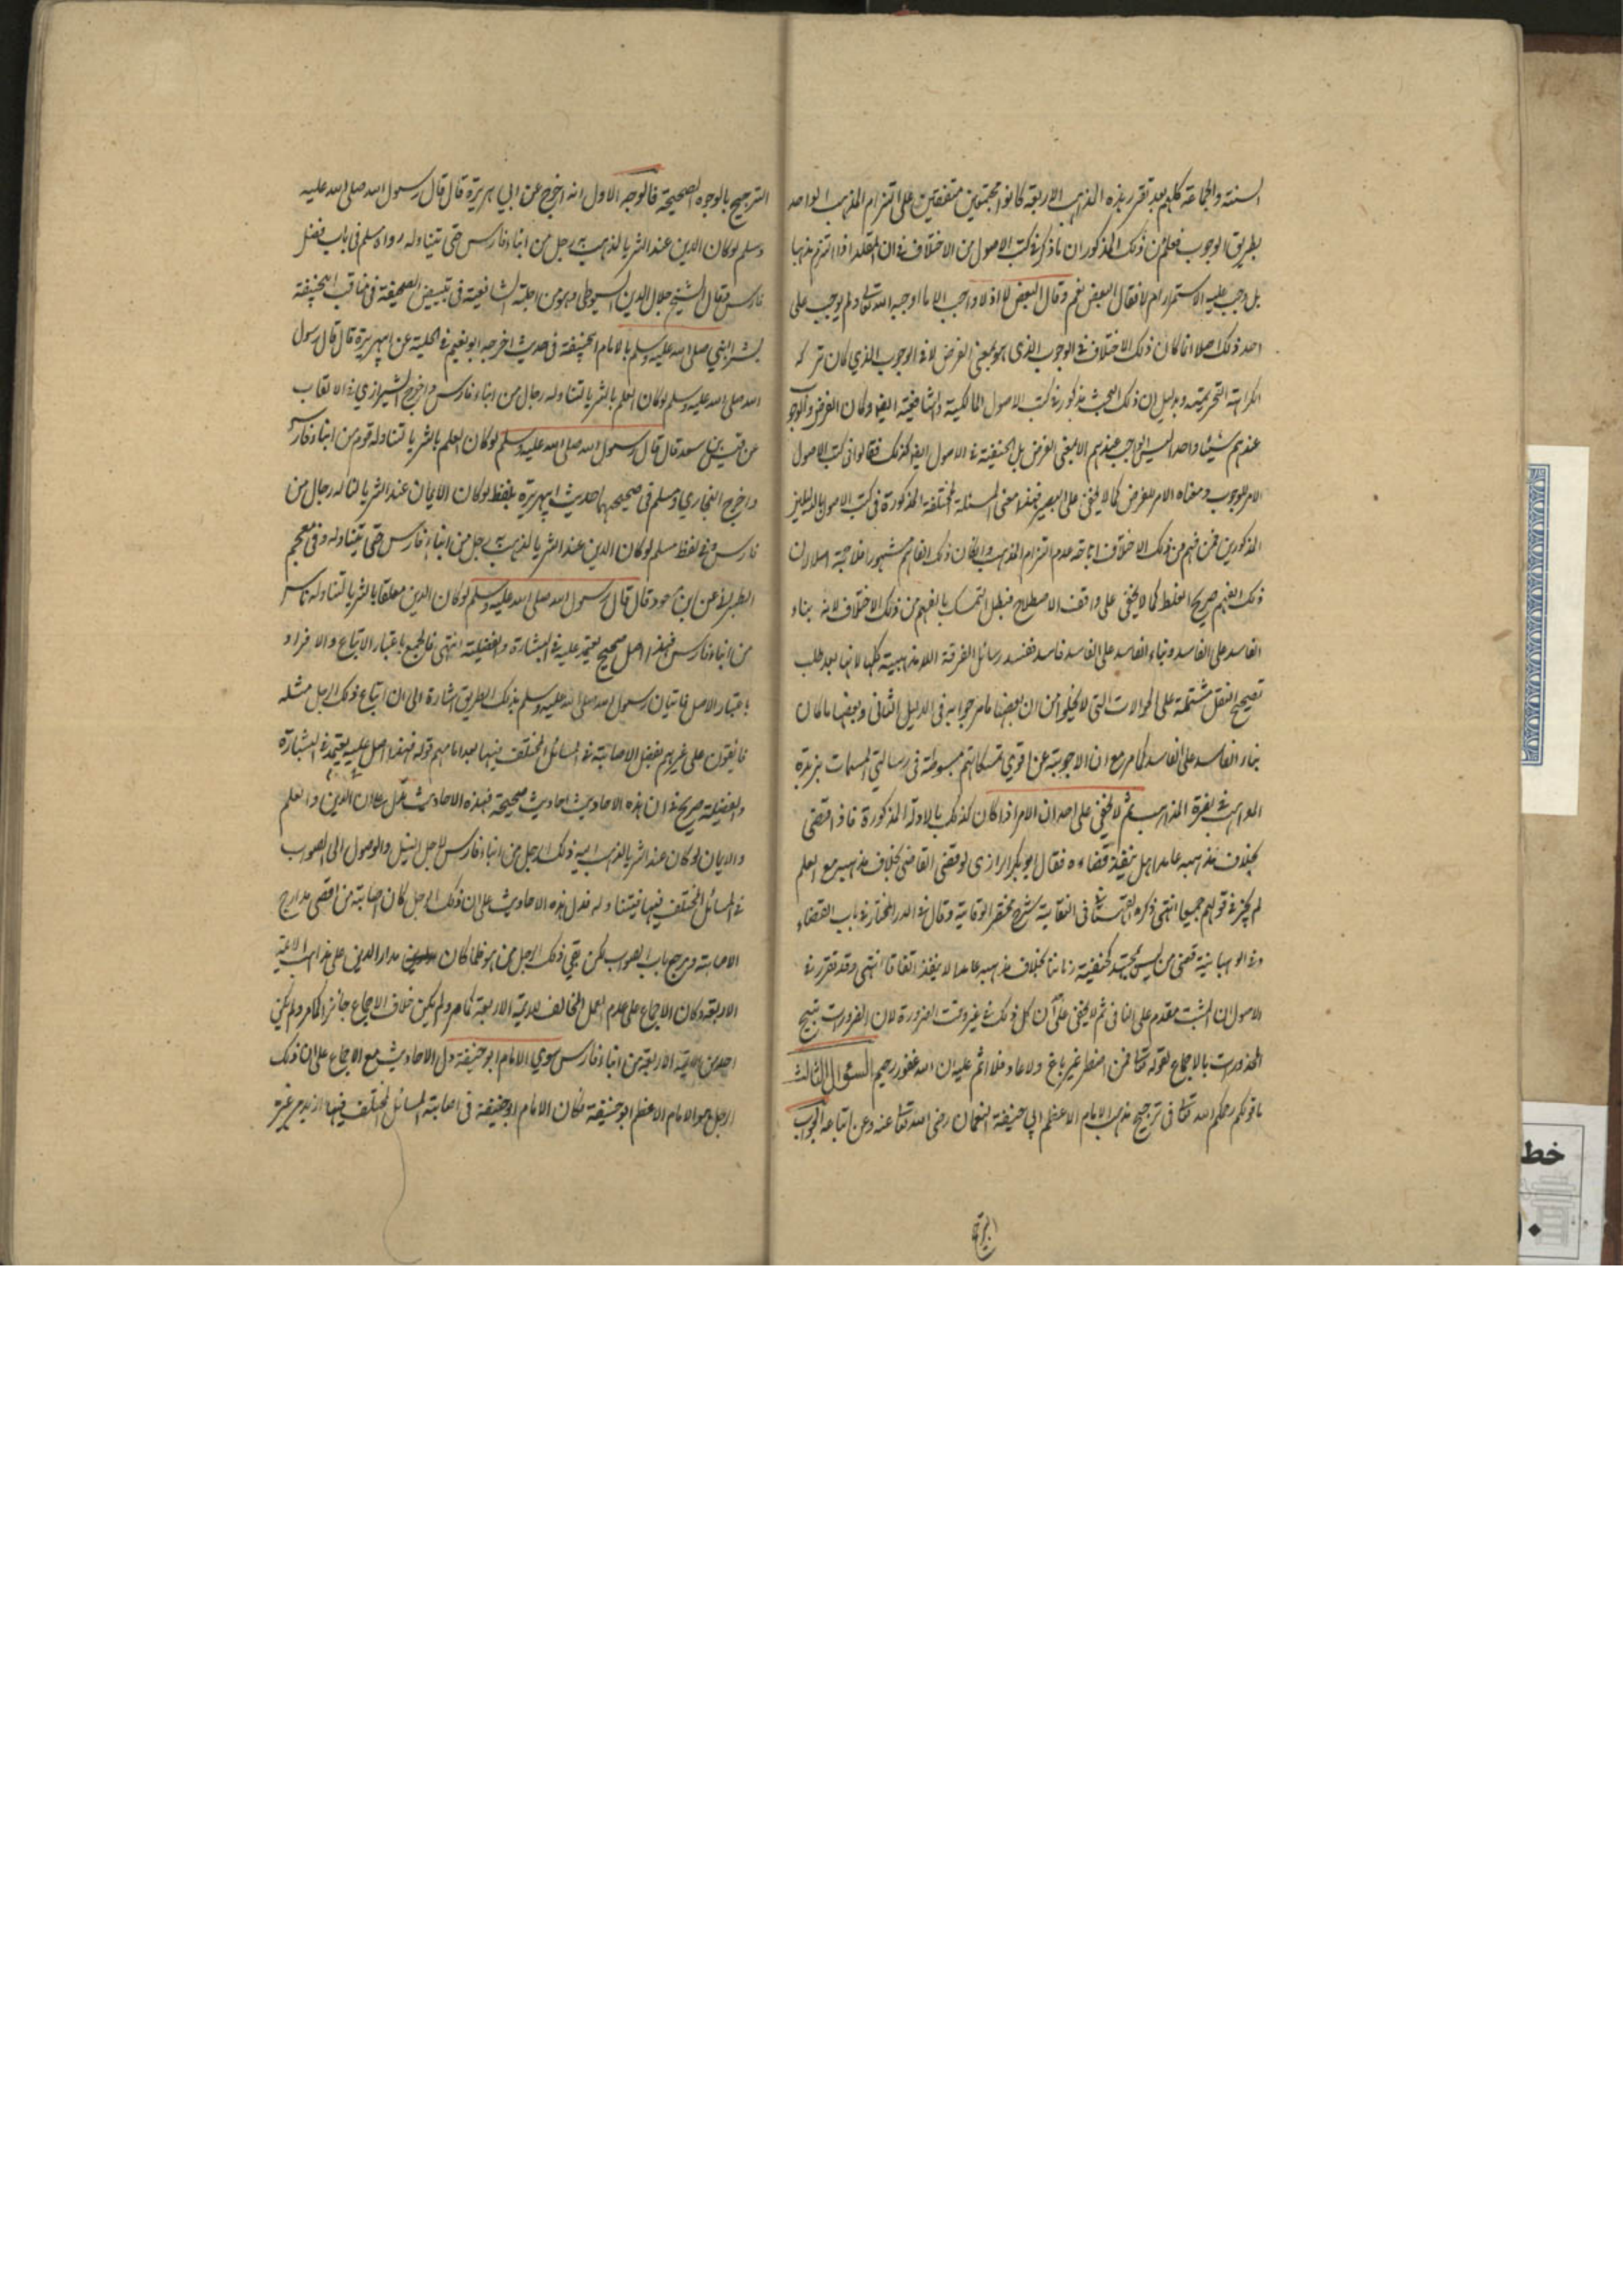 السنة والجماعة كلهم بعد تقرر هذه المذاهب الاربعة كانوا مجتمعين متفقين على التزام المذهب الواحد
بطريق الوجوب فعلم من ذلك المذكور ان ما ذكر في كتب الاصول من الاختلاف في ان المقلد اذا التزم مذهبا
بل وجب عليه الاستمرار ام لا فقال البعض نعم وقال البعض لا اذ لا واجب الا ما اوجبه الله تعالى ولم يوجب على
احد ذلك اصلا انما كان ذلك الاختلاف في الوجوب الذي هو بمعنى الفرض لا في الوجوب الذي كان تركه
مكراهة التحريمية وبدليل ان ذلك البحث مذكور في كتب الاصول المالكية والشافعية ايضا وكان الفرض والوجوب
عندهم شيئا واحدا ليس الواجب عندهم الا بمعنى الفرض بل الحنفية في الاصول ايضا كذلك فقالوا في كتب الاصول
الامر للوجوب ومعناه الامر للفرض كما لا يخفى على البصير فهذا معنى المسئلة المختلفة المذكورة في كتب الاصول بالدليلين
المذكورين فمن فهم من ذلك الاختلاف اباحة عدم التزام المذهب وان كان ذلك الفاهم مشهورا فلا حجة اصلا لان
ذلك الفهم صريح الغلط كما لا يخفى على واقف الاصطلاح فبطل التمسك بالفهم من ذلك الاختلاف لانه بناء
الفاسد على الفاسد وبناء الفاسد على الفاسد فاسد ففسد رسائل الفرقة اللامذهبية كلها لانها بعد طلب
تصحيح النقل مشتملة على الحوالات التي لا يخلو من ان بعضها ما مر جوابه في الدليل الثاني وبعضها ما كان
بناء الفاسد على الفاسد كما مر مع ان الاجوبة عن اقوي تمسكاتهم مبسوطة في رسالتي المسمات بزبدة
المواهب في نصرة المذاهب ثم لا يخفى على احد ان الامر اذا كان كذلك بالادلة المذكورة فاذا قضى
بخلاف مذهبه عامدا هل ينفذ قضاءه فقال ابو بكر الرازي لو قضى القاضي بخلاف مذهبه مع العلم
لم يجز في قولهم جميعا انتهى ذكره القهستاني في النقاية شرح مختصر الوقاية وقال في الدر المختار في باب القضاء
وفي الوهبانية قضى من ليس مجتهدا كحنفية زماننا بخلاف مذهبه عامدا لا ينفذ اتفاقا انتهى وقد تقرر في
الاصول ان المثبت مقدم على النافي ثم لا يخفى عليك ان كل ذلك في غير وقت الضرورة لان الضرورات تبيح
المحذورات بالاجماع لقوله تعالى فمن اضطر غير باغ ولا عاد فلا اثم عليه ان الله غفور رحيم السؤال الثالث
ما قولكم رحمكم الله تعالى في ترجيح مذهب الامام الاعظم ابي حنيفة النعمان رضى الله تعالى عنه وعن اتباعه الجواب
الترجيح بالوجوه الصحيحة فالوجه الاول انه اخرج عن ابي هريرة قال قال رسول الله صلى الله عليه
وسلم لو كان الدين عند الثريا لذهب به رجل من ابناء فارس حتى يتناوله رواه مسلم في باب فضل
فارس فقال الشيخ جلال الدين السيوطي وهو من اجلة الشافعية في تبييض الصحيفة في مناقب ابي حنيفة
بشر النبي صلى الله عليه وسلم بالامام ابي حنيفة في حديث اخرجه ابو نعيم في الحلية عن ابي هريرة قال قال رسول
الله صلى الله عليه وسلم لو كان العلم بالثريا لتناوله رجال من ابناء فارس واخرج الشيرازي في الالقاب
عن قيس بن سعد قال قال رسول الله صلى الله عليه وسلم لو كان العلم بالثريا لتناوله قوم من ابناء فارس
واخرج البخاري ومسلم في صحيحهما حديث ابي هريرة بلفظ لو كان الايمان عند الثريا لناله رجال من
فارس وفي لفظ مسلم لو كان الدين عند الثريا لذهب به رجل من ابناء فارس حتى يتناوله وفي معجم
الطبراني عن ابن مسعود قال قال رسول الله صلى الله عليه وسلم لو كان الدين معلقا بالثريا لتناوله ناس
من ابناء فارس فهذا اصل صحيح يعتمد عليه في البشارة والفضيلة انتهى فالجمع باعتبار الاتباع والافراد
باعتبار الاصل فاتيان رسول الله صلى الله عليه وسلم بذلك الطريق اشارة الى ان اتباع ذلك الرجل مثله
فائقون على غيرهم بفضل الاصابة في المسائل المختلف فيها بعد امامهم قوله فهذا اصل عليه يعتمد في البشارة
والفضيلة صريح في ان هذه الاحاديث احاديث صحيحة فهذه الاحاديث تدل على ان الدين والعلم
والايمان لو كان عند الثريا لذهب اليه ذلك الرجل من ابناء فارس لاجل النيل والوصول الى الصواب
في المسائل المختلف فيها فيتناوله فدل هذه الاحاديث على ان ذلك الرجل كان اصابته من اقصى مدارج
الاصابة ومرجح باب الصواب لكن بقي ذلك الرجل من هو فلما كان مدار الدين على مذاهب الائمة
الاربعة وكان الاجماع على عدم العمل المخالف للائمة الاربعة كما مر ولم يكن خلاف الاجماع جائز اكما مر ولم يكن
احد من الائمة الاربعة من ابناء فارس سوي الامام ابو حنيفة دل الاحاديث مع الاجماع على ان ذلك
الرجل هو الامام الاعظم ابو حنيفة فكان الامام ابو حنيفة في اصابة المسائل المختلف فيها ازيد من غيره
خط